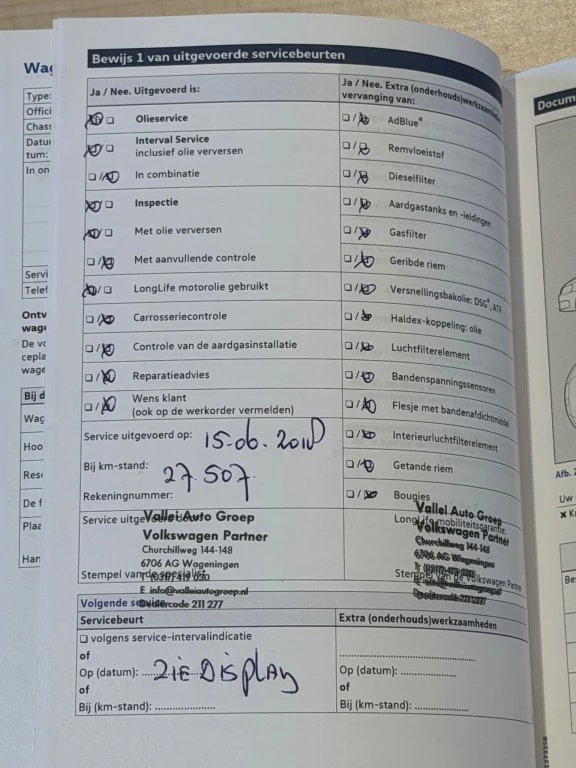 Wag
Type:
Offici
Chass
Datu
tum:
In on
Servi
Telef
Ontv
wage
De vo
cepla
wage
Bij d
Wag
Hoo
Rese
De f
Plaa
Han
Bewijs 1 van uitgevoerde servicebeurten
Ja / Nee. Uitgevoerd is:
Olieservice
Interval Service
inclusief olie verversen
In combinatie
Inspectie
Met olie verversen
Met aanvullende controle
LongLife motorolie gebruikt
Carrosseriecontrole
Controle van de aardgasinstallatie
Reparatieadvies
Wens klant
(ook op de werkorder vermelden)
Service uitgevoerd op: 15-06-2018
Bij km-stand: 27.507
Rekeningnummer:
Service uitgevoerd door:
Vallei Auto Groep
Volkswagen Partner
Churchillweg 144-148
6706 AG Wageningen
T (0317) 419 030
E info@valleiautogroep.nl
Dealercode 211 277
Stempel van de specialist
Ja / Nee. Extra (onderhouds)werkzaamheden
vervanging van:
AdBlue®
Remvloeistof
Dieselfilter
Aardgastanks en -leidingen
Gasfilter
Geribde riem
Versnellingsbakolie: DSG®, ATF
Haldex-koppeling: olie
Luchtfilterelement
Bandenspanningssensoren
Flesje met bandenafdichtmiddel
Interieurluchtfilterelement
Getande riem
Bougies
LongLife mobiliteitsgarantie:
Vallei Auto Groep
Volkswagen Partner
Churchillweg 144-148
6706 AG Wageningen
T (0317) 419 030
E info@valleiautogroep.nl
Dealercode 211 277
Stempel van de Volkswagen Partner
Volgende service
Servicebeurt
volgens service-intervalindicatie
of
Op (datum): ZIE DISPLAY
of
Bij (km-stand): ....................
Extra (onderhouds)werkzaamheden
Op (datum): ....................
of
Bij (km-stand): ....................
Docum
Afb. 2
Uw
× Kr
Bes